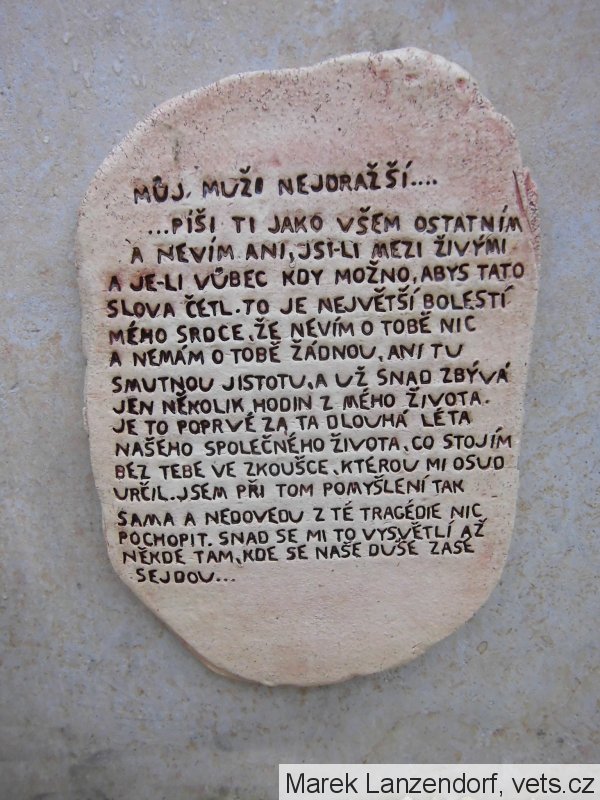 MŮJ, MUŽI NEJDRAŽŠÍ....
...PÍŠI TI JAKO VŠEM OSTATNÍM
A NEVÍM ANI, JSI-LI MEZI ŽIVÝMI
A JE-LI VŮBEC KDY MOŽNO, ABYS TATO
SLOVA ČETL. TO JE NEJVĚTŠÍ BOLESTÍ
MÉHO SRDCE, ŽE NEVÍM O TOBĚ NIC
A NEMÁM O TOBĚ ŽÁDNOU, ANI TU
SMUTNOU JISTOTU, A UŽ SNAD ZBÝVÁ
JEN NĚKOLIK HODIN Z MÉHO ŽIVOTA.
JE TO POPRVÉ ZA TA DLOUHÁ LÉTA
NAŠEHO SPOLEČNÉHO ŽIVOTA, CO STOJÍM
BEZ TEBE VE ZKOUŠCE, KTEROU MI OSUD
URČIL. JSEM PŘI TOM POMYŠLENÍ TAK
SAMA A NEDOVEDU Z TÉ TRAGÉDIE NIC
POCHOPIT. SNAD SE MI TO VYSVĚTLÍ AŽ
NĚKDE TAM, KDE SE NAŠE DUŠE ZASE
SEJDOU...
Marek Lanzendorf, vets.cz